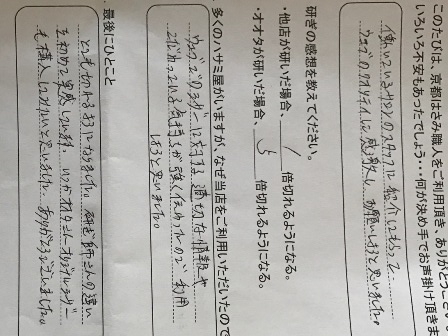 このたびは、京都はさみ職人をご利用頂き、ありがとう
いろいろ不安もあったでしょう・・・何が決め手でお声掛け頂きま
スタッフに紹介してもらって
ウェブのクオリティに感激し、お願いしようと思いました。
研ぎの感想を教えてください。
・他店が研いだ場合、 / 倍切れるようになる。
・オオタが研いだ場合、 5 倍切れるようになる。
多くのハサミ屋がいますが、なぜ当店をご利用いただいたので
適切な情報や
こだわっている気持ちが強く伝わったので利用
しようと思いました。
最後にひとこと
とても切れるようになりました。研ぎ師さんの強い
を初めて実感しています。いつか
も購入したいと思いました。ありがとうございました。